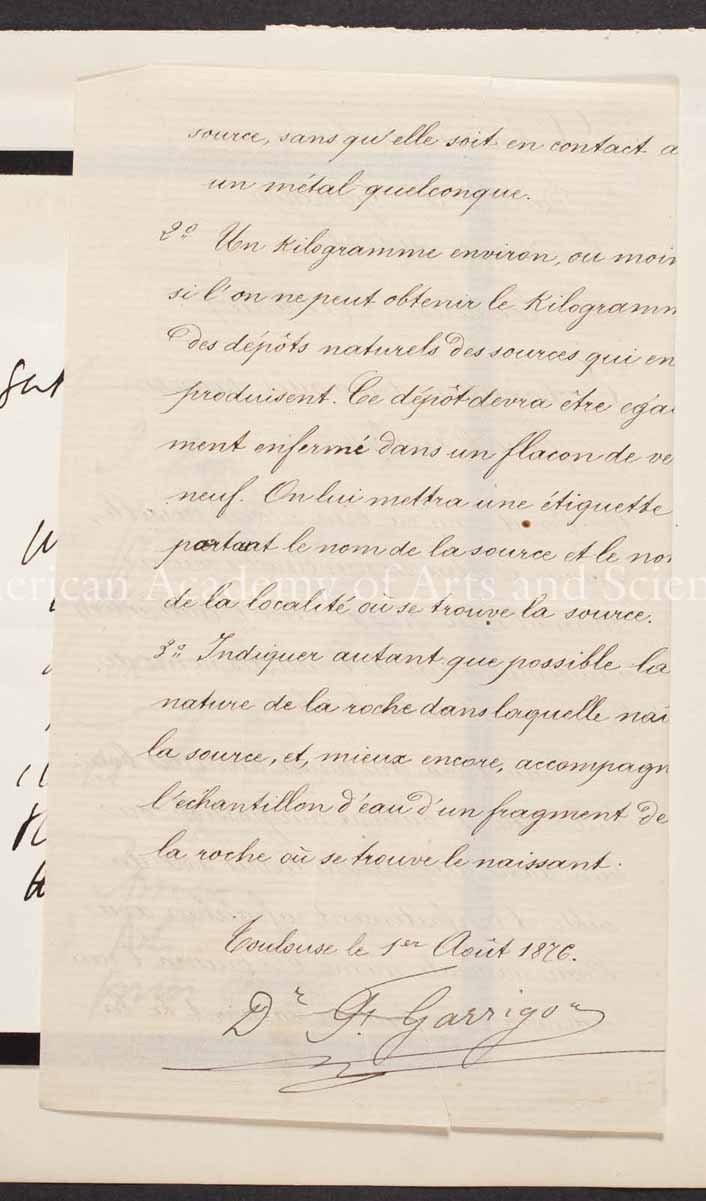 source, sans qu'elle soit en contact a
un métal quelconque.
2º Un Kilogramme environ, ou moin
si l'on ne peut obtenir le Kilogramm
des dépôts naturels des sources qui en
produisent. Ce dépôt devra être ega
ment enfermé dans un flacon de ve
neuf. On lui mettra une étiquette
portant le nom de la source et le no
merican Academy of Arts and Scien
de la localité où se trouve la source.
3º Indiquer autant que possible la
nature de la roche dans laquelle nai
la source, et, mieux encore, accompagn
l'échantillon d'eau d'un fragment de
la roche où se trouve le naissant.
Toulouse le 1er Août 1876.
Dr F. Garrigou